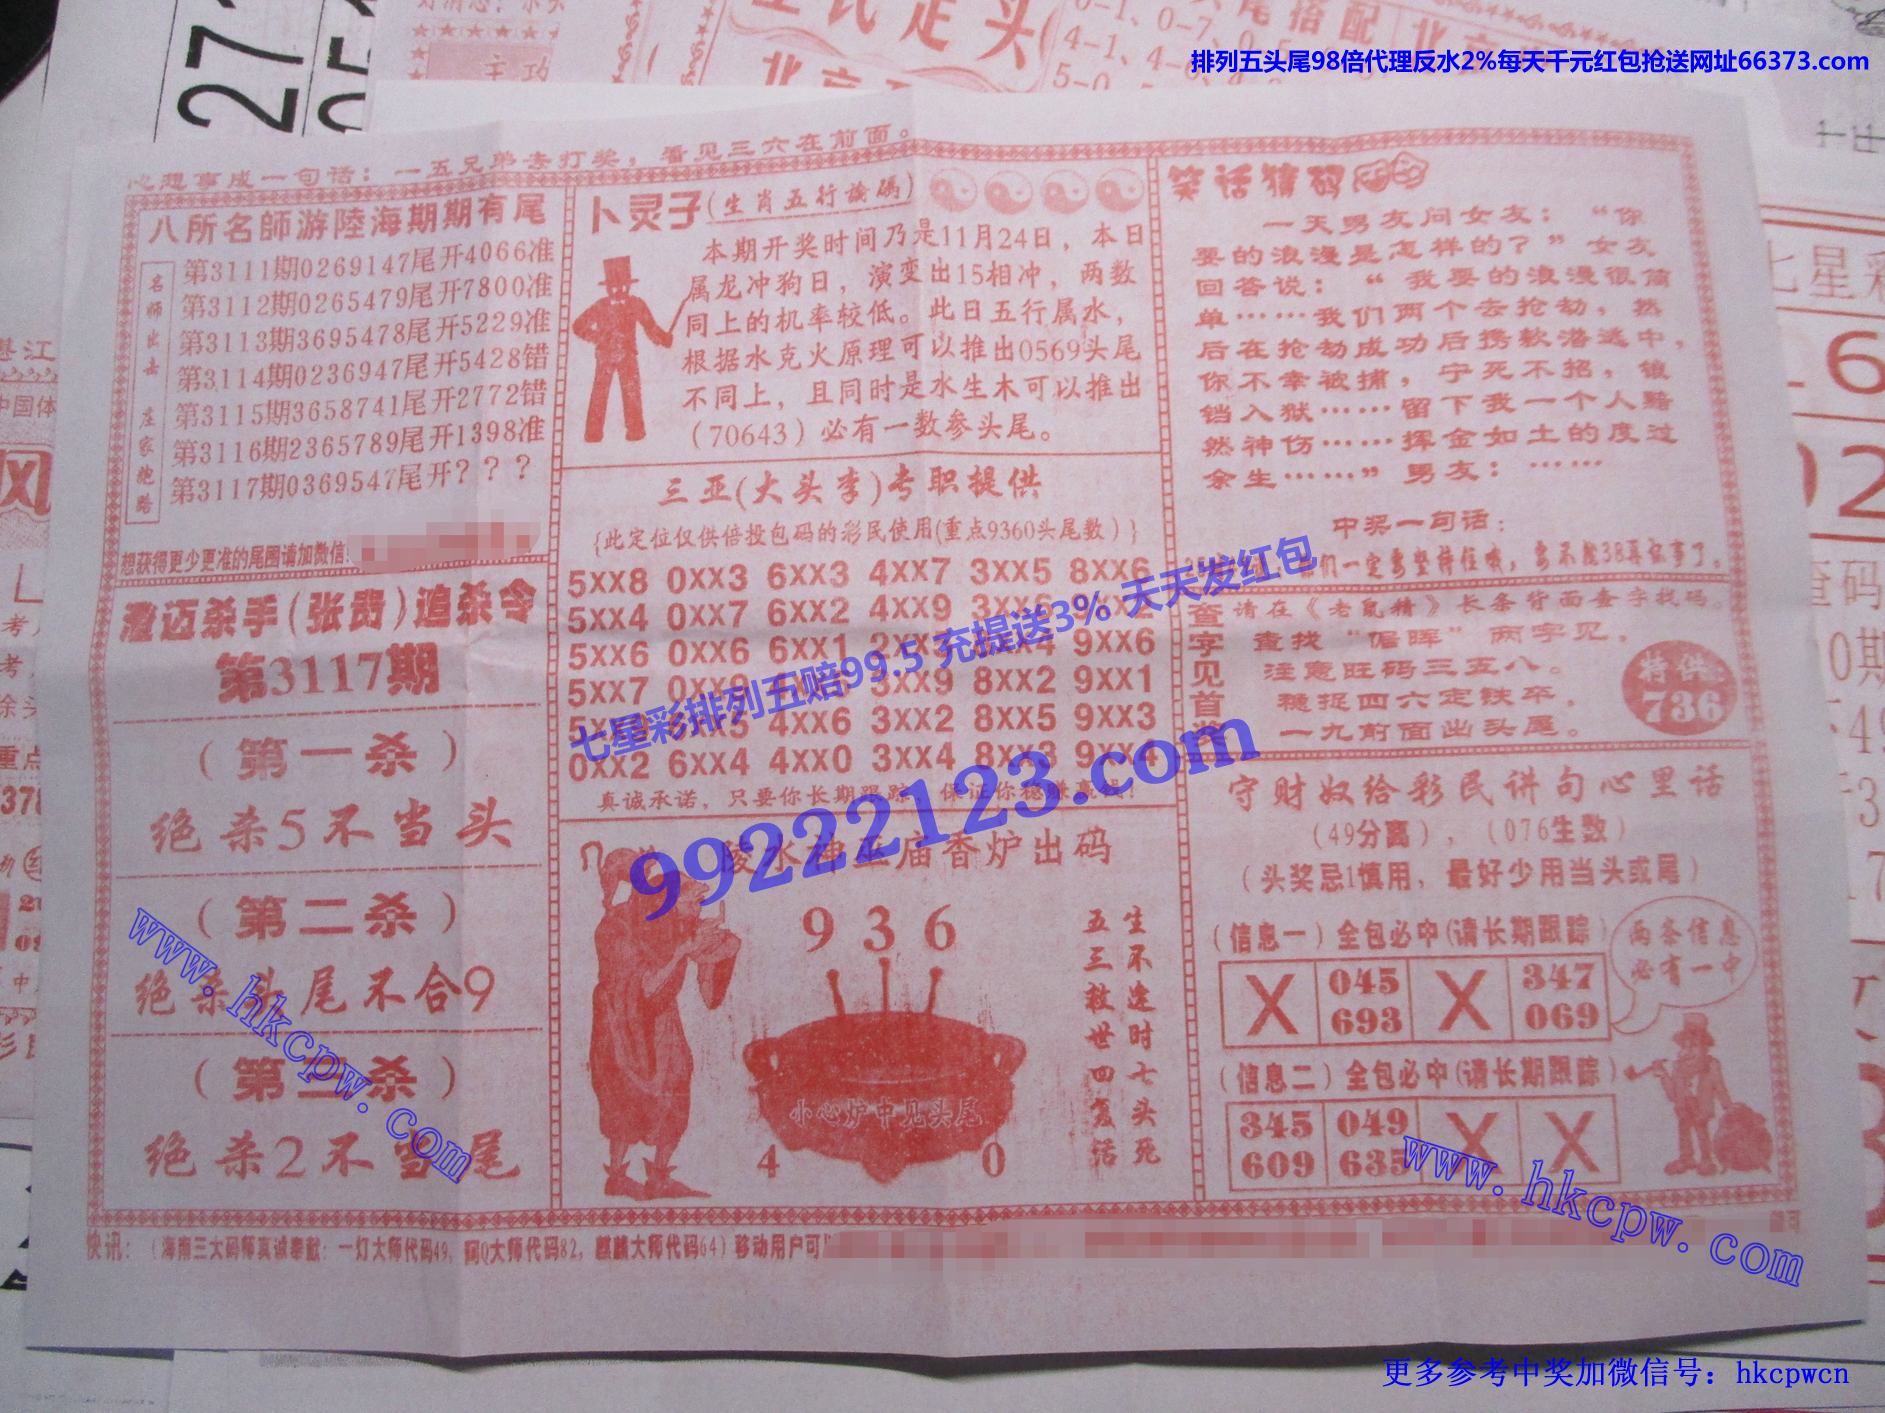 排列五头尾98倍代理反水2%每天千元红包抢送网址66373.com
心想事成一句话：一五兄弟去打奖，看见三六在前面。
八所名師游陸海期期有尾
名师出击 庄家抱路
第3111期0269147尾开4066准
第3112期0265479尾开7800准
第3113期3695478尾开5229准
第3114期0236947尾开5428错
第3115期3658741尾开2772错
第3116期2365789尾开1398准
第3117期0369547尾开？？？
想获得更少更准的尾围请加微信:
澄迈杀手(张贵)追杀令
第3117期
(第一杀)
绝杀5不当头
(第二杀)
绝杀头尾不合9
(第三杀)
绝杀2不当尾
卜灵子(生肖五行論碼)
本期开奖时间乃是11月24日，本日
属龙冲狗日，演变出15相冲，两数
同上的机率较低。此日五行属水，
根据水克火原理可以推出0569头尾
不同上，且同时是水生木可以推出
（70643）必有一数参头尾。
三亚(大头李)专职提供
{此定位仅供倍投包码的彩民使用(重点9360头尾数)}
5XX8 0XX3 6XX3 4XX7 3XX5 8XX6
5XX4 0XX7 6XX2 4XX9
5XX6 0XX6 6XX1 9XX6
5XX7 3XX9 8XX2 9XX1
4XX6 3XX2 8XX5 9XX3
0XX2 6XX4 4XX0 3XX4 8XX3 9XX4
真诚承诺，只要你长期跟踪，保证你稳赚赢钱!
七星彩排列五赔99.5 充提送3% 天天发红包
99222123.com
庙香炉出码
9 3 6
小心炉中见头尾
4 0
生不逢时七头死
五三救世四复活
笑话猜码
一天男友问女友：“你
要的浪漫是怎样的？”女友
回答说：“我要的浪漫很简
单……我们两个去抢劫，然
后在抢劫成功后携款潜逃中，
你不幸被捕，宁死不招，锒
铛入狱……留下我一个人黯
然神伤……挥金如土的度过
余生……”男友：……
中奖一句话：
们一定要坚持住哦，
查字见首奖
请在《老鼠精》长条背面查字找码
查找“偓晖”两字见，
注意旺码三五八。
稳捉四六定铁卒，
一九前面出头尾。
特供 736
守财奴给彩民讲句心里话
(49分离)，(076生数)
(头奖忌1慎用，最好少用当头或尾)
(信息一)全包必中(请长期跟踪)
X 045 693 X 347 069
两条信息
必有一中
(信息二)全包必中(请长期跟踪)
345 609 049 635 X X
快讯：(海南三大码师真诚奉献：一灯大师代码49，阿Q大师代码82，麒麟大师代码64)移动用户可
www.hkcpw.com
www.hkcpw.com
更多参考中奖加微信号：hkcpwcn